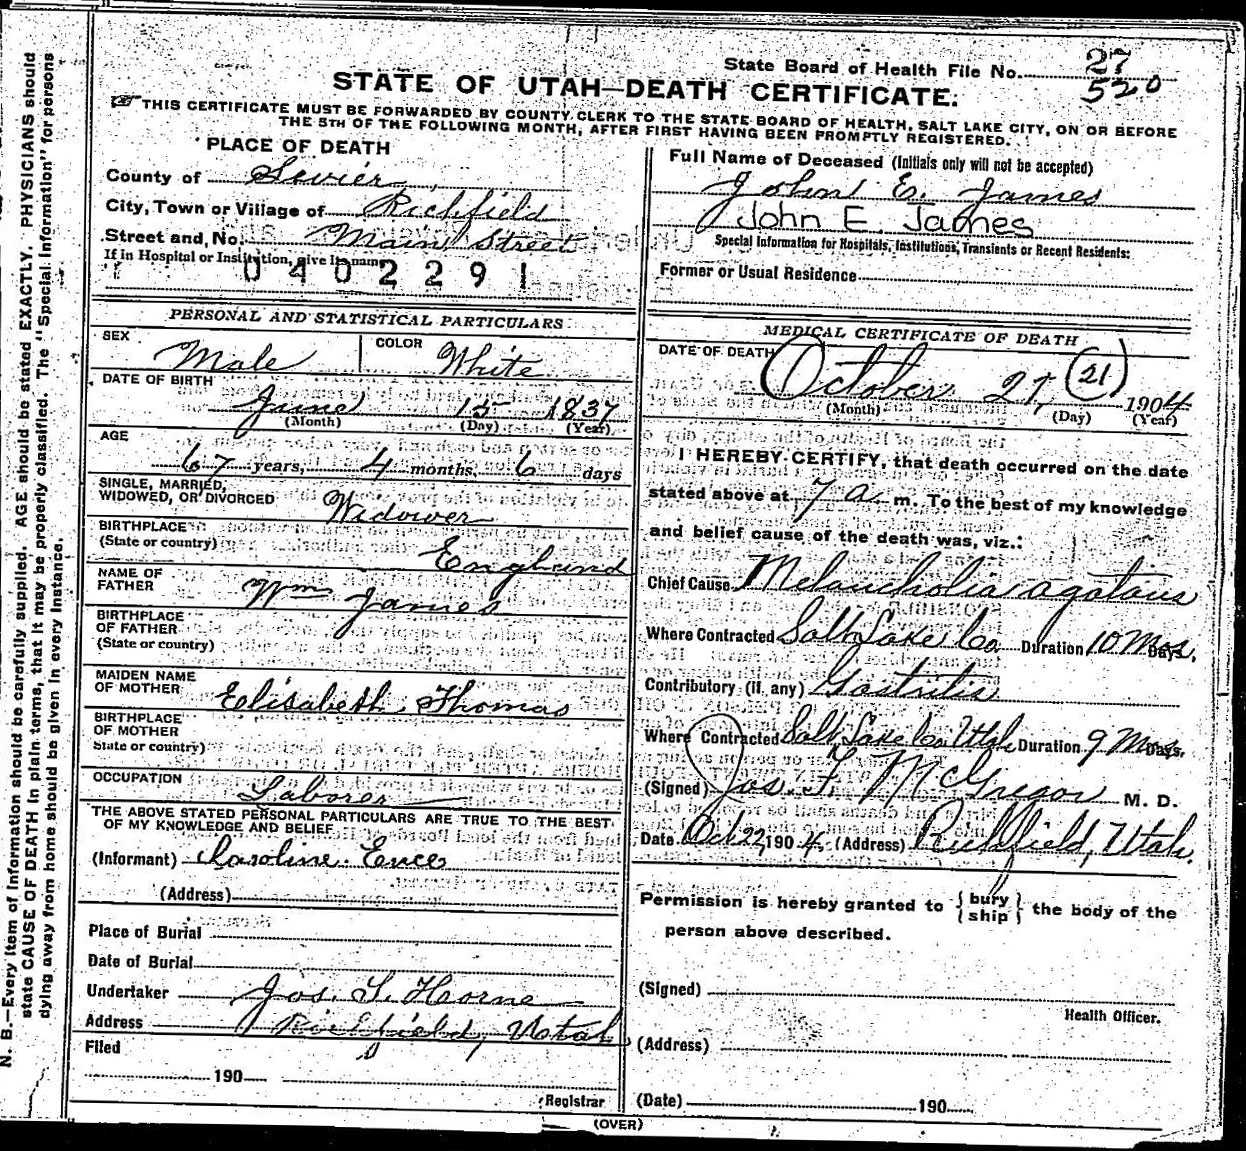 State Board of Health File No. 27
520
STATE OF UTAH—DEATH CERTIFICATE.
THIS CERTIFICATE MUST BE FORWARDED BY COUNTY CLERK TO THE STATE BOARD OF HEALTH, SALT LAKE CITY, ON OR BEFORE
THE 5TH OF THE FOLLOWING MONTH, AFTER FIRST HAVING BEEN PROMPTLY REGISTERED.
PLACE OF DEATH
County of Sevier
City, Town or Village of Richfield
Street and, No. Main Street
If in Hospital or Institution, give its name
0402291
Full Name of Deceased (Initials only will not be accepted)
John E. James
John E. James
Special Information for Hospitals, Institutions, Transients or Recent Residents:
Former or Usual Residence
PERSONAL AND STATISTICAL PARTICULARS
SEX Male COLOR White
DATE OF BIRTH
June 15 1837
(Month) (Day) (Year)
AGE
67 years, 4 months, 6 days
SINGLE, MARRIED,
WIDOWED, OR DIVORCED Widower
BIRTHPLACE
(State or country) England
NAME OF
FATHER Wm James
BIRTHPLACE
OF FATHER
(State or country)
MAIDEN NAME
OF MOTHER Elisabeth Thomas
BIRTHPLACE
OF MOTHER
State or country)
OCCUPATION Laborer
THE ABOVE STATED PERSONAL PARTICULARS ARE TRUE TO THE BEST
OF MY KNOWLEDGE AND BELIEF
(Informant) Caroline Ence
(Address)
Place of Burial
Date of Burial
Undertaker Jos. S. Horne
Address Richfield, Utah
Filed
190
Registrar
MEDICAL CERTIFICATE OF DEATH
DATE OF DEATH October 21, (21) 1904
(Month) (Day) (Year)
I HEREBY CERTIFY, that death occurred on the date
stated above at 7 a m. To the best of my knowledge
and belief cause of the death was, viz.:
Chief Cause Melancholia agatans
Where Contracted Salt Lake Co Duration 10 Mos. Days.
Contributory (if any) Gastritis
Where Contracted Salt Lake Co. Utah Duration 9 Mos. Days.
(Signed) Jos. F. McGregor M. D.
Date Oct 22, 1904. (Address) Richfield, Utah.
Permission is hereby granted to { bury
ship } the body of the
person above described.
(Signed)
Health Officer.
(Address)
(Date) 190
(OVER)
N. B.—Every item of information should be carefully supplied. AGE should be stated EXACTLY. PHYSICIANS should
state CAUSE OF DEATH in plain terms, that it may be properly classified. The "Special Information" for persons
dying away from home should be given in every instance.